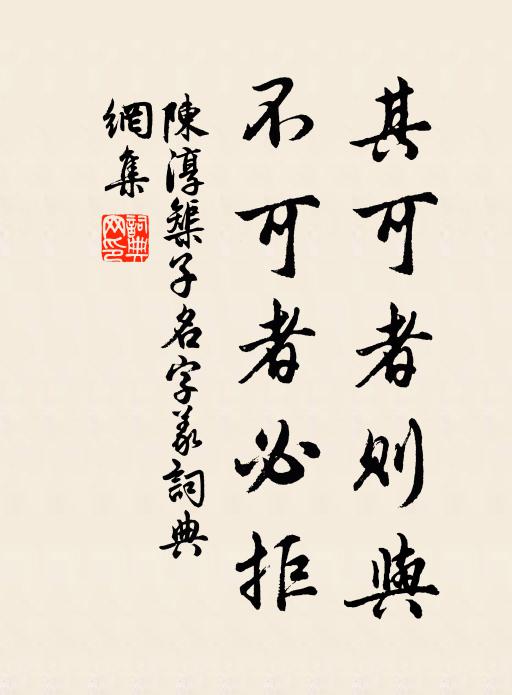 其可者則與
不可者必拒
陳淳築子名字義詞典
網集
詞典
網印